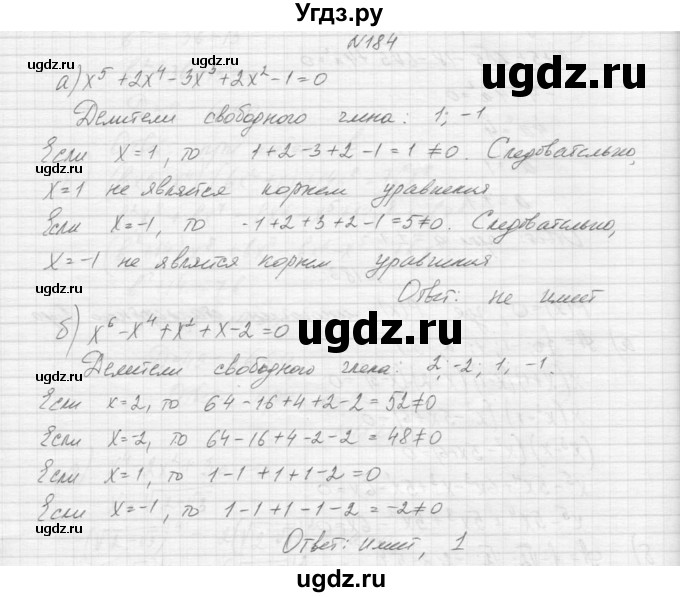 Угдз.ру
№184
а) x⁵ + 2x⁴ - 3x³ + 2x² - 1 = 0
Делители свободного члена: 1; -1
Если x=1, то 1+2-3+2-1=1≠0. Следовательно,
x=1 не является корнем уравнения
Если x=-1, то -1+2+3+2-1=5≠0. Следовательно,
x=-1 не является корнем уравнения
Ответ: не имеет
б) x⁶ - x⁴ + x² + x - 2 = 0
Делители свободного члена: 2; -2; 1, -1.
Если x=2, то 64-16+4+2-2=52≠0
Если x=-2, то 64-16+4-2-2=48≠0
Если x=1, то 1-1+1+1-2=0
Если x=-1, то 1-1+1-1-2=-2≠0
Ответ: имеет, 1
ugdz.ru
ugdz.ru
ugdz.ru
ugdz.ru
ugdz.ru
ugdz.ru
ugdz.ru
ugdz.ru
ugdz.ru
ugdz.ru
ugdz.ru
ugdz.ru